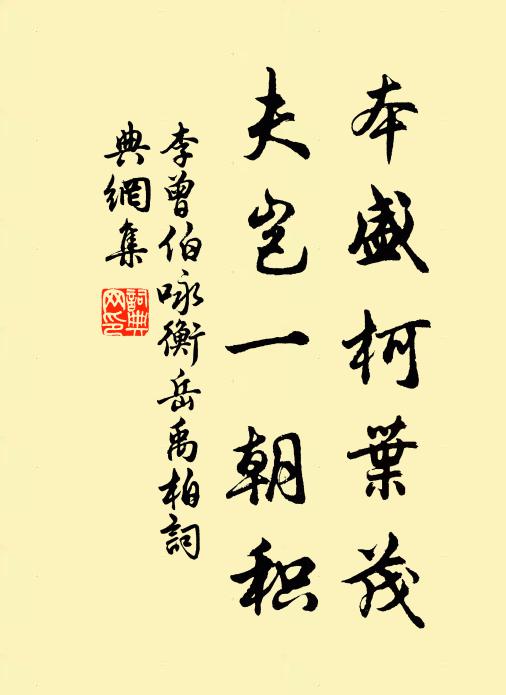 本盛柯葉茂
夫豈一朝积
李曾伯咏衡岳禹柏詞
典網集
詞典
网印